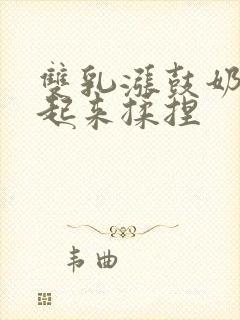 雙乳漲鼓奶
起来揉捏
韦曲